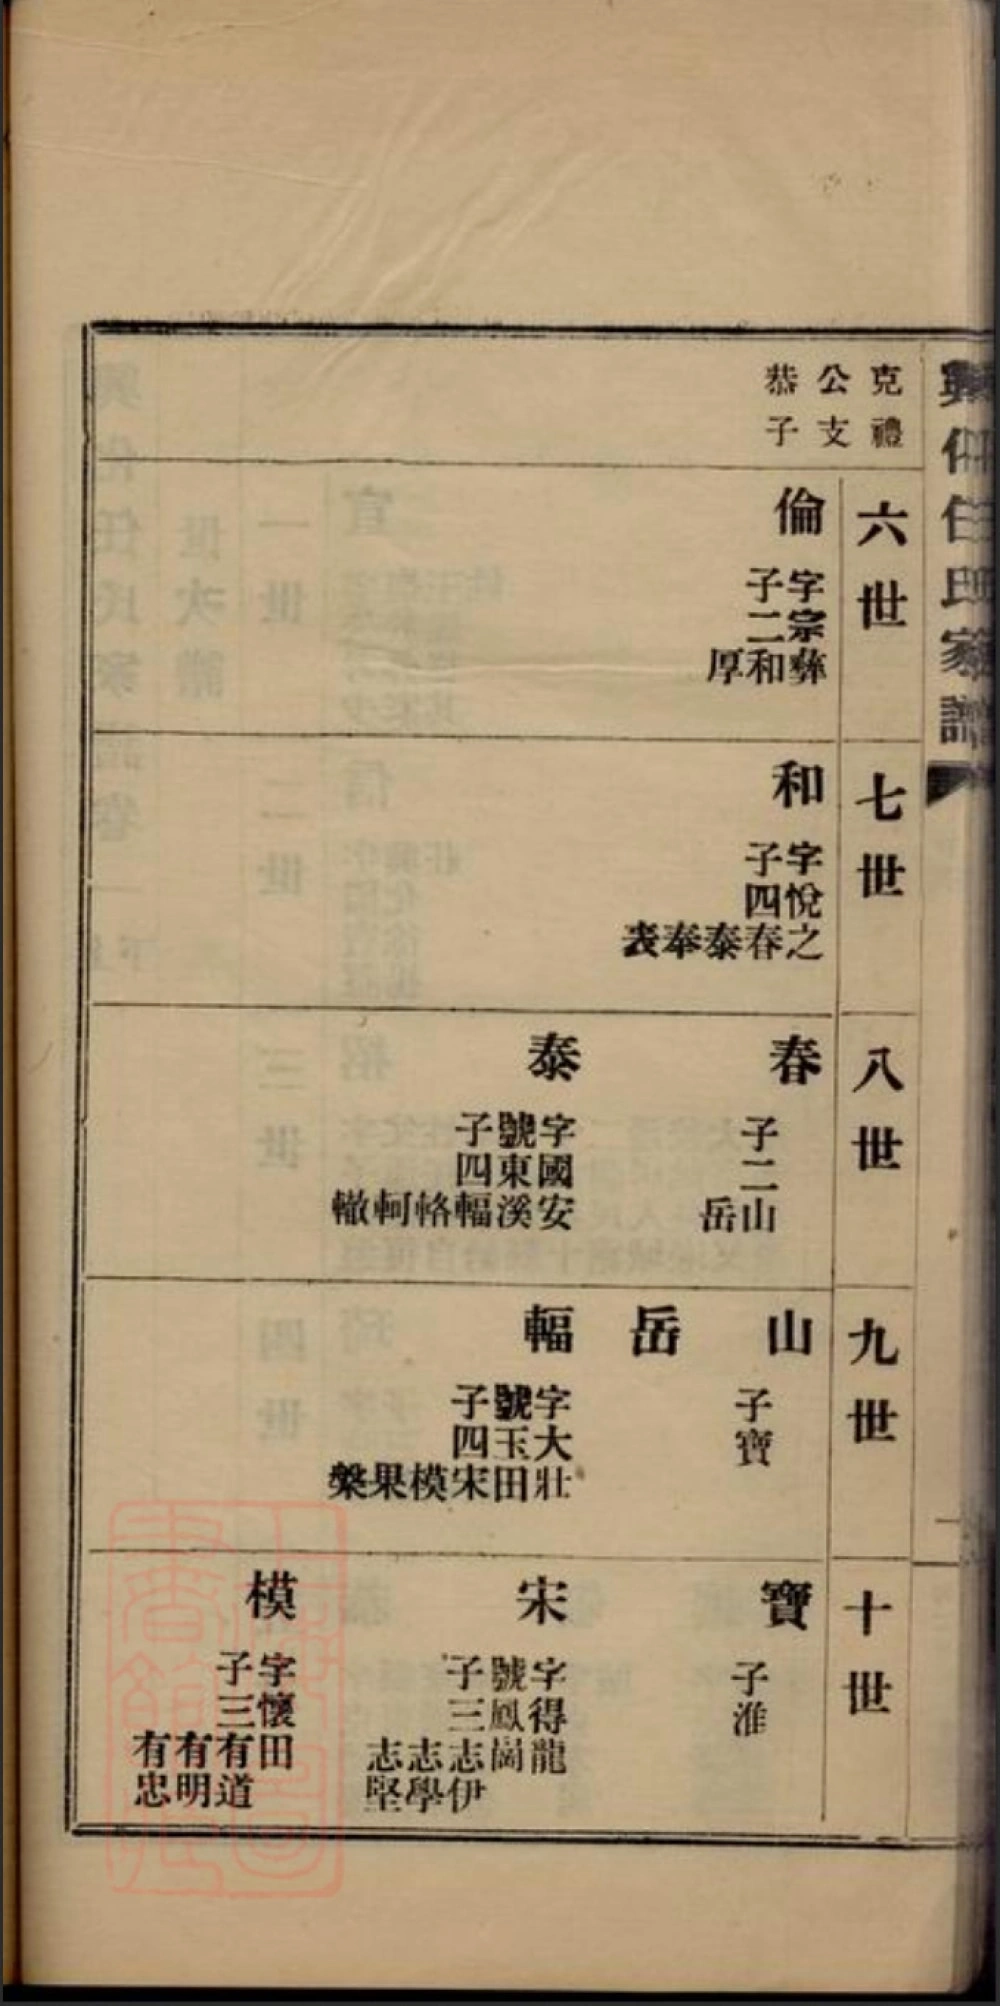 興化任氏家譜
克禮
公支
恭子
六世
倫
字宗彝
子二和
厚
七世
和
字悅之
子四春
泰
奉
表
八世
春
子二山
岳
泰
字國安
號東溪
子四輻
輅
軻
轍
九世
山
子寶
岳
輻
字大壯
號玉田
子四宋
模
果
槃
十世
寶
子淮
宋
字得龍
號鳳崗
子三志伊
志學
志堅
模
字懷田
子三有道
有明
有忠